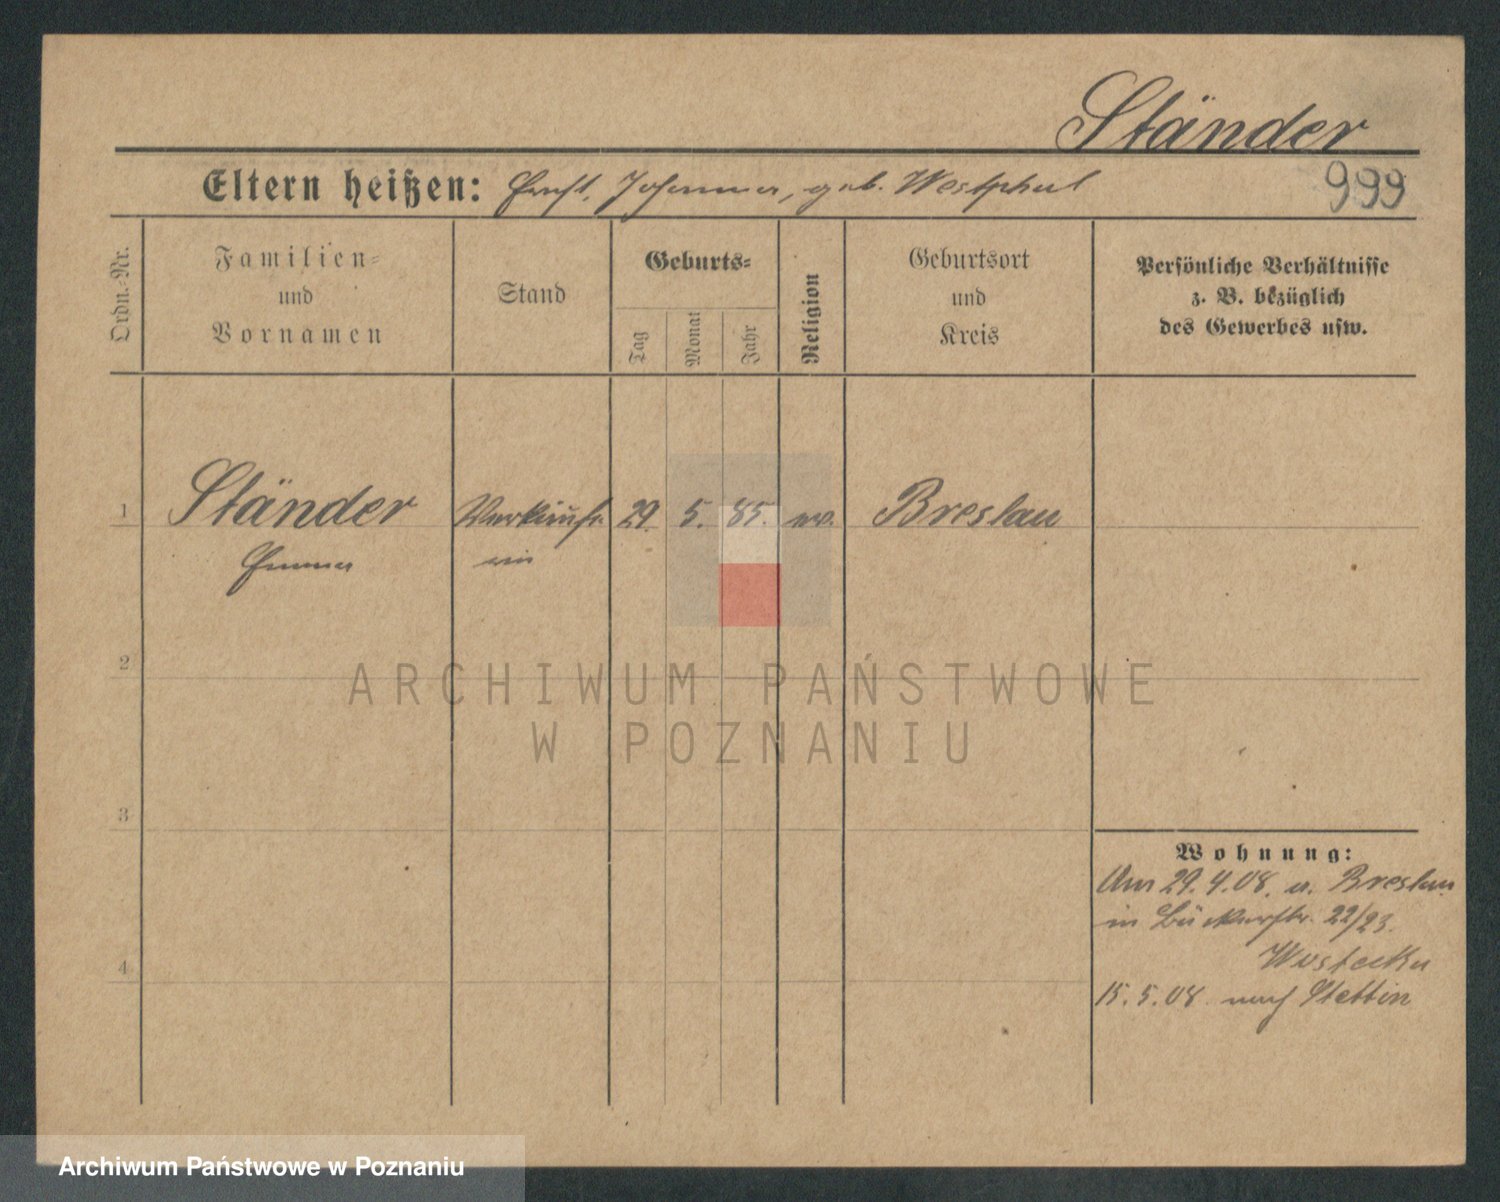 Ständer
Eltern heißen: Ernst, Johanna, geb. Westphal
999
Ordn.-Nr.
Familien-
und
Vornamen
Stand
Geburts-
Tag
Monat
Jahr
Religion
Geburtsort
und
Kreis
Persönliche Verhältnisse
z. B. bezüglich
des Gewerbes usw.
1
Ständer
Emma
Verkäufe-
rin
29. 5. 85.
ev.
Breslau
2
3
4
Wohnung:
Am 29.4.08. v. Breslau
in Bäckerstr. 22/23.
15.5.08. nach Stettin
ARCHIWUM PAŃSTWOWE
W POZNANIU
Archiwum Państwowe w Poznaniu